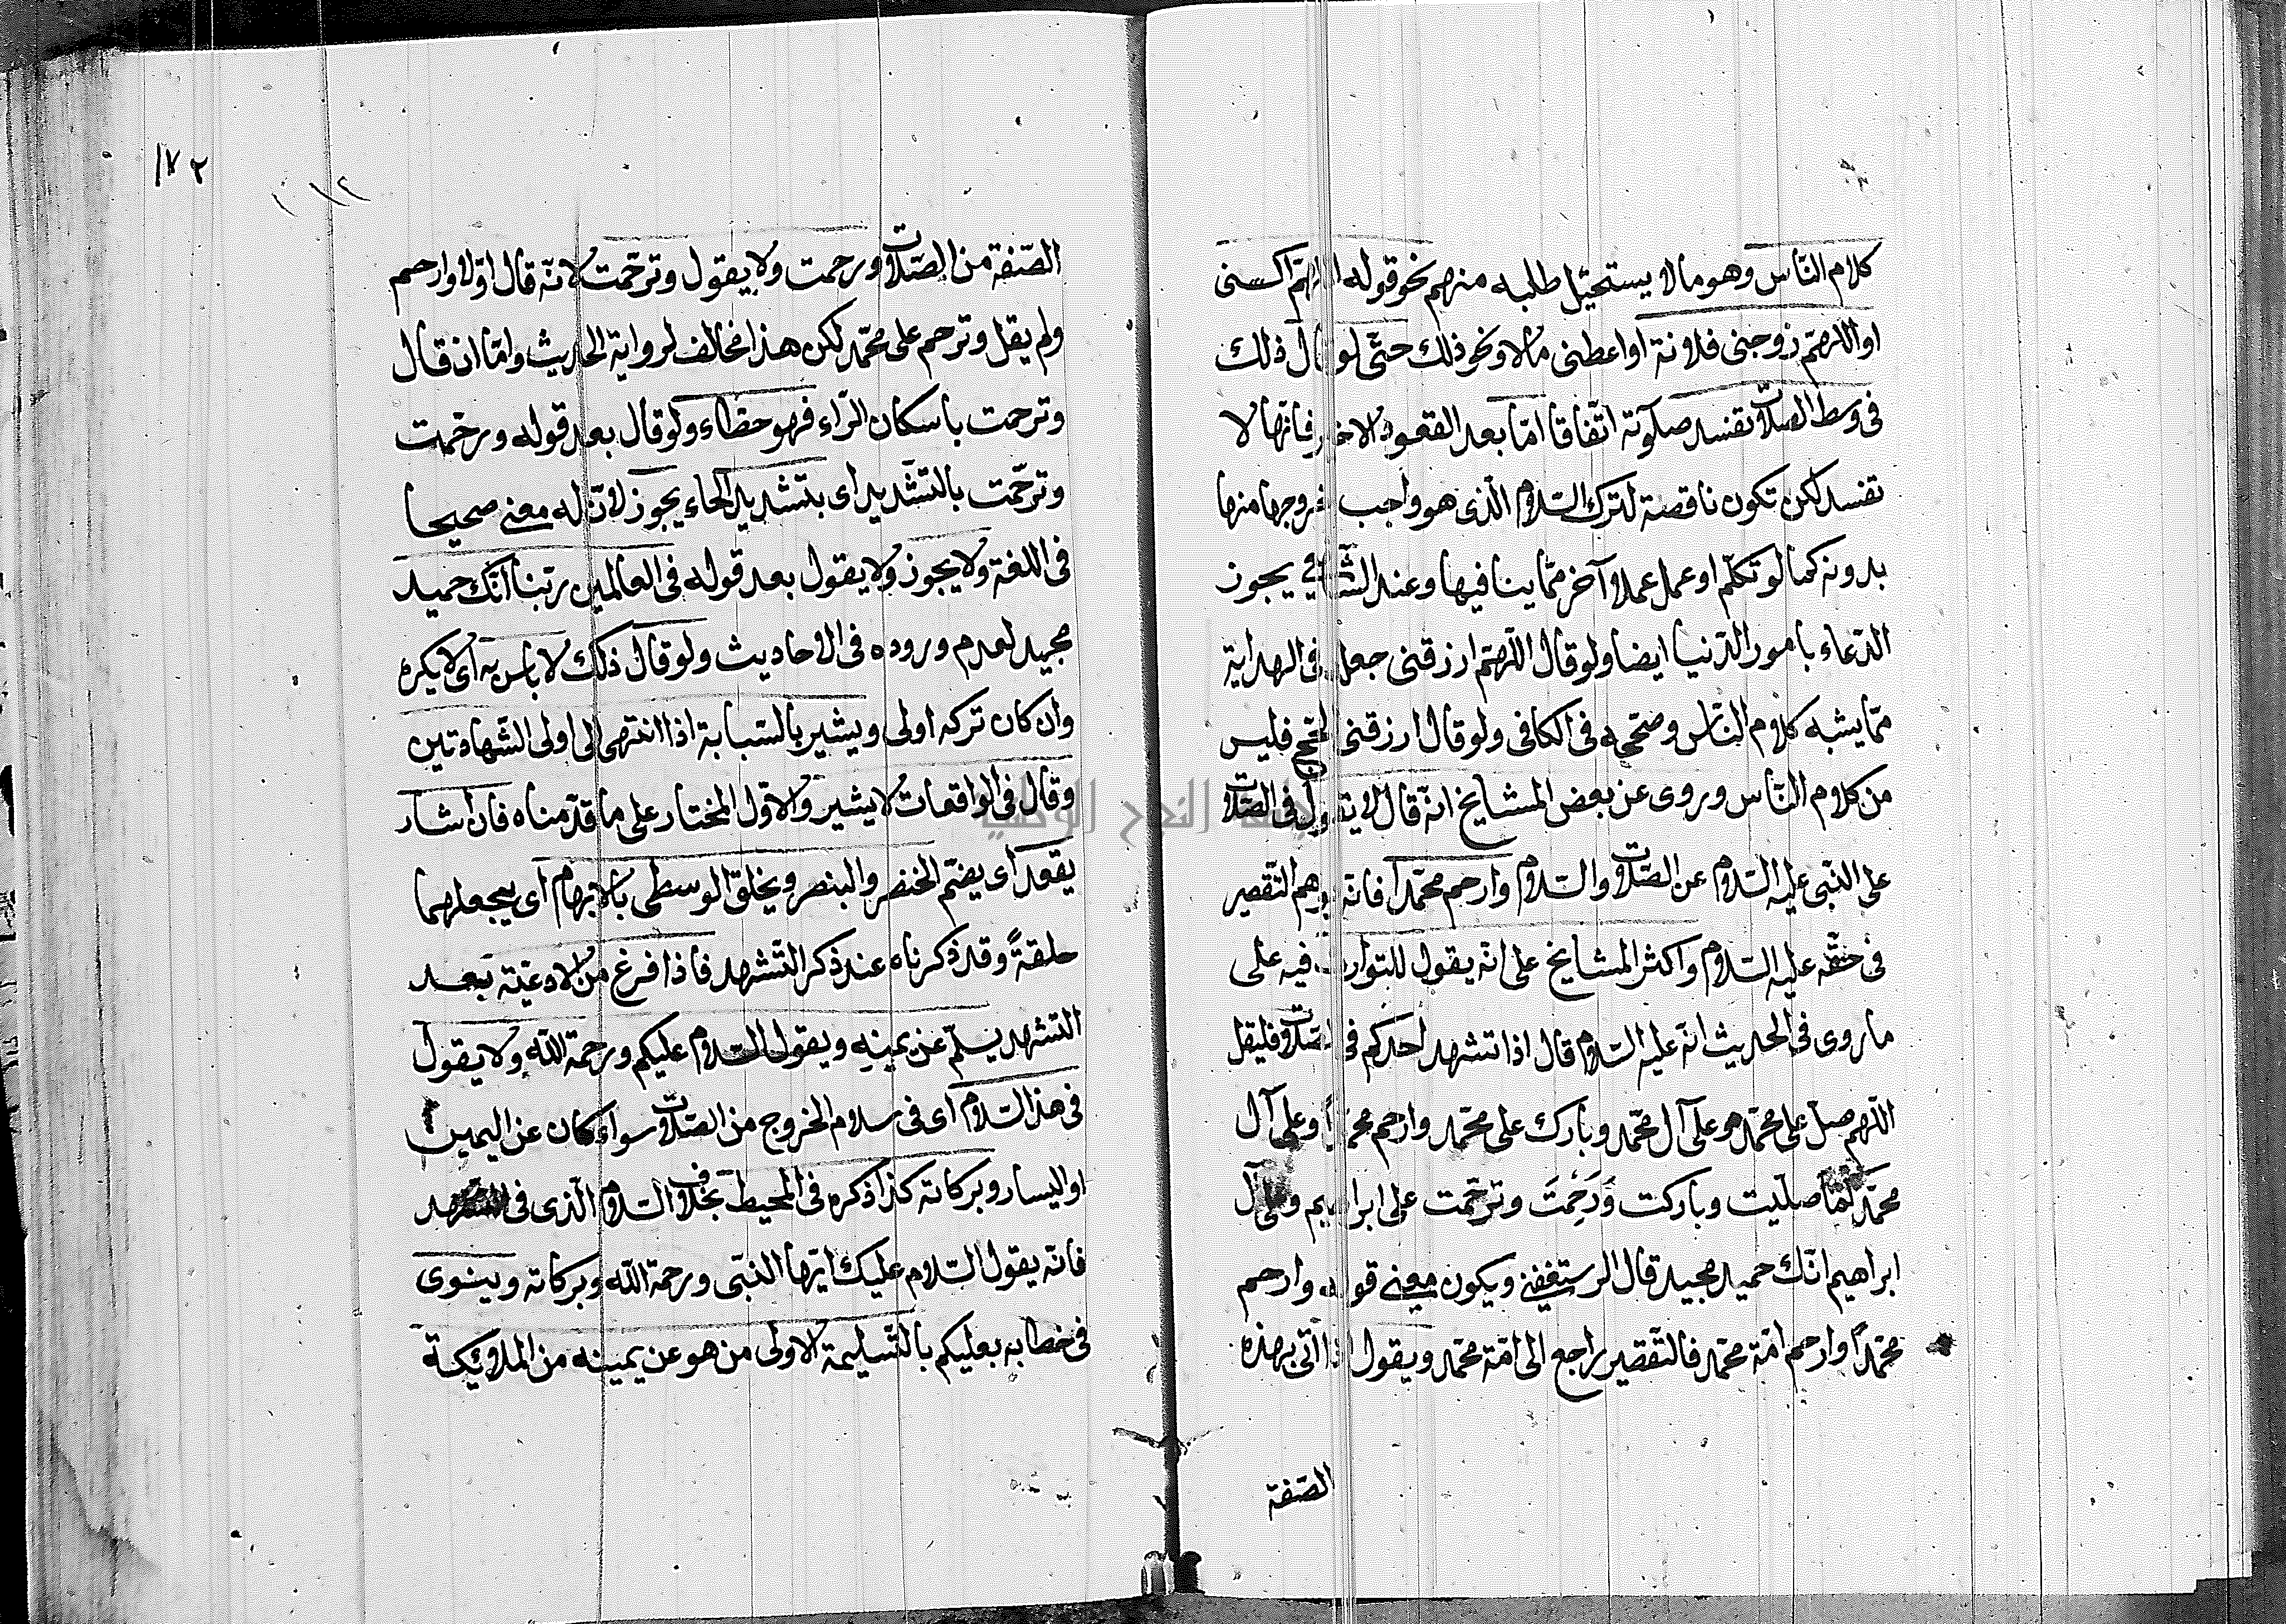 كلام الناس وهو ما لا يستحيل طلبه منهم نحو قوله اللهم اكسنى
او اللهم زوجنى فلانة او اعطنى مالا ونحو ذلك حتى لو قال ذلك
فى وسط الصلاة تفسد صلوته اتفاقا اما بعد القعود الاخير فانها لا
تفسد لكن تكون ناقصة لترك السلام الذى هو واجب خروجها منها
بدونه كما لو تكلم او عمل عملا آخر مما ينافيها وعند الشافعي يجوز
الدعاء بامور الدنيا ايضا ولو قال اللهم ارزقنى جعل فى الهداية
مما يشبه كلام الناس وصححه فى الكافى ولو قال ارزقنى الحج فليس
من كلام الناس وروى عن بعض المشايخ انه قال لا يقول فى الصلاة
على النبى عليه السلام عن الصلاة والسلام وارحم محمدا فانه يوهم التقصير
فى حقه عليه السلام واكثر المشايخ على انه يقول للتوارث فيه على
ما روى فى الحديث انه عليه السلام قال اذا تشهد احدكم فى الصلاة فليقل
اللهم صل على محمد وعلى آل محمد وبارك على محمد وارحم محمدا وعلى آل
محمد كما صليت وباركت وَرَحِمْتَ وترحمت على ابراهيم وعلى آل
ابراهيم انك حميد مجيد قال الرستغفنى ويكون معنى قوله وارحم
محمدا وارحم امة محمد فالتقصير راجع الى امة محمد ويقول اذا اتى بهذه
الصفة
١٧٢
الصفة من الصلاة ورحمت ولا يقول وترحمت لانه قال اولا وارحم
ولم يقل وترحم على محمد لكن هذا مخالف لرواية الحديث واما ان قال
وترحمت باسكان الراء فهو خطاء ولو قال بعد قوله ورحمت
وترحمت بالتشديد اى بتشديد الحاء يجوز لان له معنى صحيحا
فى اللغة ولا يجوز ولا يقول بعد قوله فى العالمين ربنا انك حميد
مجيد لعدم وروده فى الاحاديث ولو قال ذلك لا باس به اى لا يكره
وان كان تركه اولى ويشير بالسبابة اذا انتهى الى اولى الشهادتين
وقال فى الواقعات لا يشير والاول المختار على ما قدمناه فان اشار
يقعد اى يضم الخنصر والبنصر ويحلق الوسطى بالابهام اى يجعلهما
حلقةً وقد ذكرناه عند ذكر التشهد فاذا فرغ من الادعية بعد
التشهد يسلم عن يمينه ويقول السلام عليكم ورحمة الله ولا يقول
فى هذا السلام اى فى سلام الخروج من الصلاة سواء كان عن اليمين
او اليسار وبركاته كذا ذكره فى المحيط بخلاف السلام الذى فى التشهد
فانه يقول السلام عليك ايها النبى ورحمة الله وبركاته وينوى
فى خطابه بعليكم بالتسليمة الاولى من هو عن يمينه من الملائكة